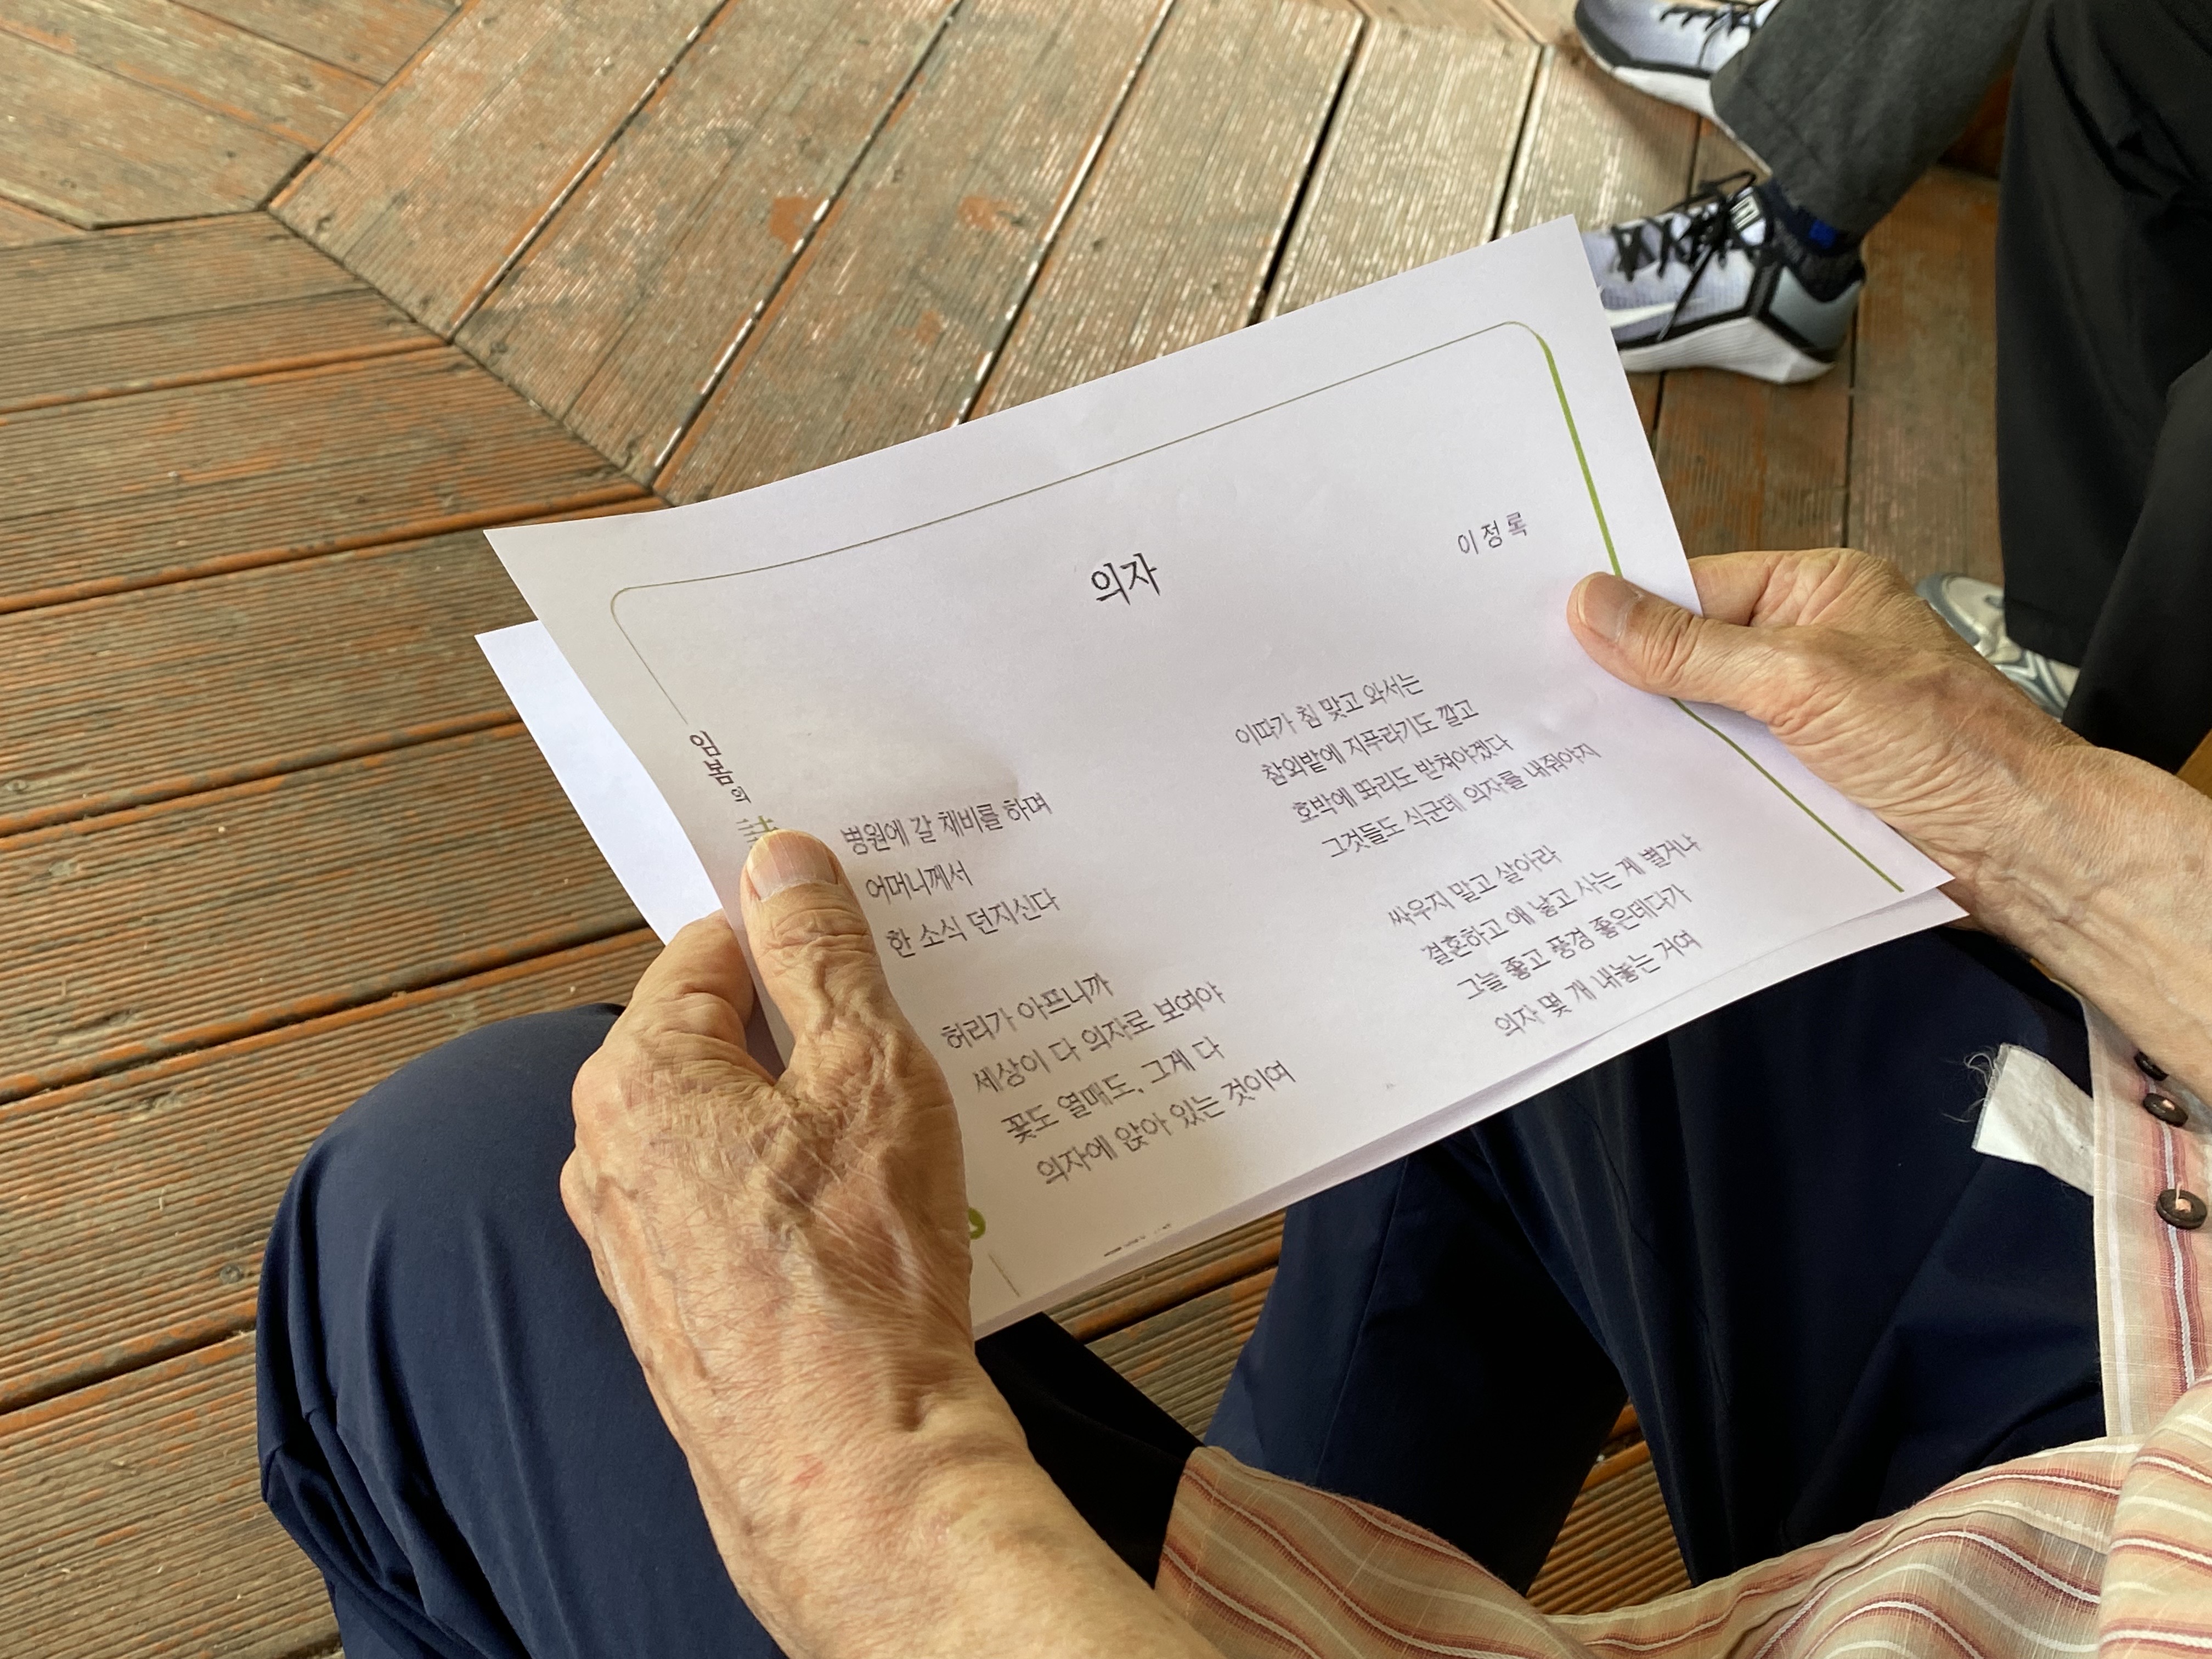 의자
이정록
병원에 갈 채비를 하며
어머니께서
한 소식 던지신다
허리가 아프니까
세상이 다 의자로 보여야
꽃도 열매도, 그게 다
의자에 앉아 있는 것이여
이따가 침 맞고 와서는
참외밭에 지푸라기도 깔고
호박에 똬리도 받쳐야겠다
그것들도 식군데 의자를 내줘야지
싸우지 말고 살아라
결혼하고 애 낳고 사는 게 별거냐
그늘 좋고 풍경 좋은데다가
의자 몇 개 내놓는 거여